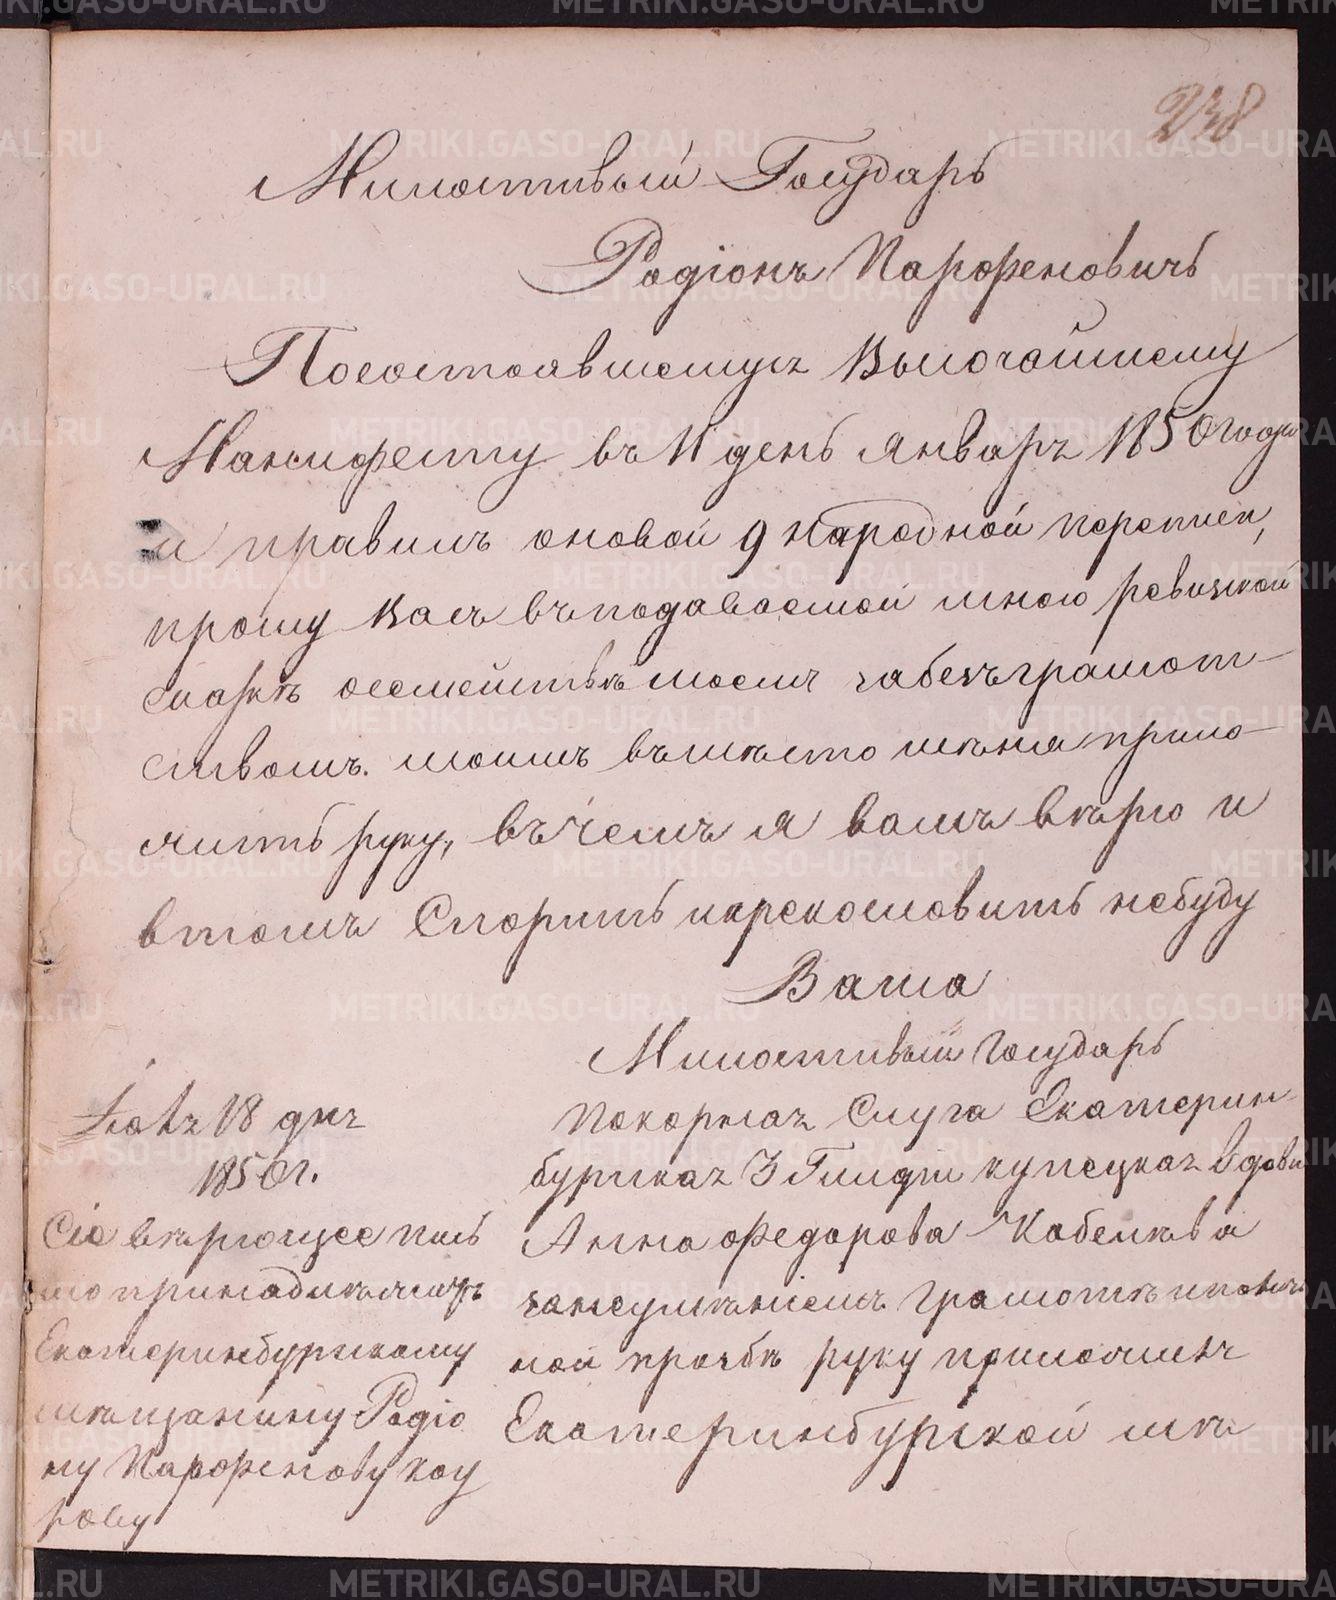 238
Милостивый Государь
Родіонъ Парфеновичъ
Посостоявшемуся Высочайшему
Манифесту въ 11 день января 1850 года
и правилъ оновой 9 народной переписи,
прошу васъ въ подаваемой мною ревизской
скаскѣ осемействѣ моемъ забезъграмот-
ствомъ моимъ въмѣсто мѣня прило-
жить руку, въ чемъ я вамъ вѣрю и
втомъ Спорить ипрекословить небуду
Ваша
Милостивый Государь
покорная Слуга Екатерин-
бурская 3 Гилдіи купецкая вдова
Анна Федорова Кобелѣва
занеумѣніемъ Грамотѣ
ной прозбѣ руку приложилъ
Екатеринбурской мѣ
18 дня
1850 г.
Сіе вѣрющее пись
мо принадлѣжитъ
Екатеринбурскому
мѣщанину Родіо
ну Парфенову